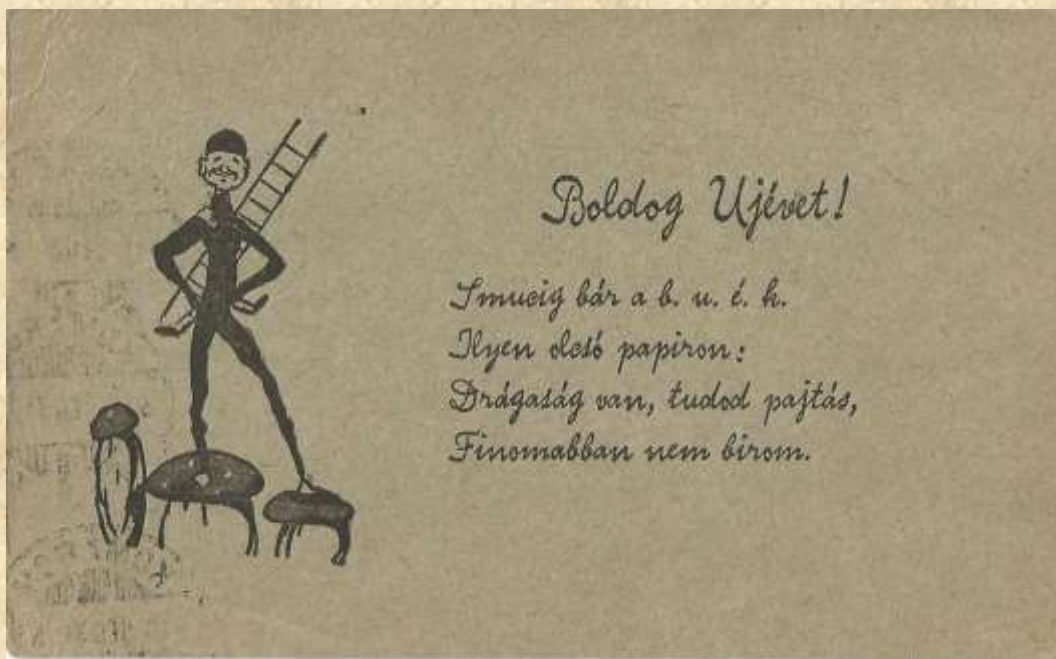 Boldog Ujévet!
Smucig bár a b. u. é. k.
Ilyen olcsó papiron:
Drágaság van, tudod pajtás,
Finomabban nem birom.